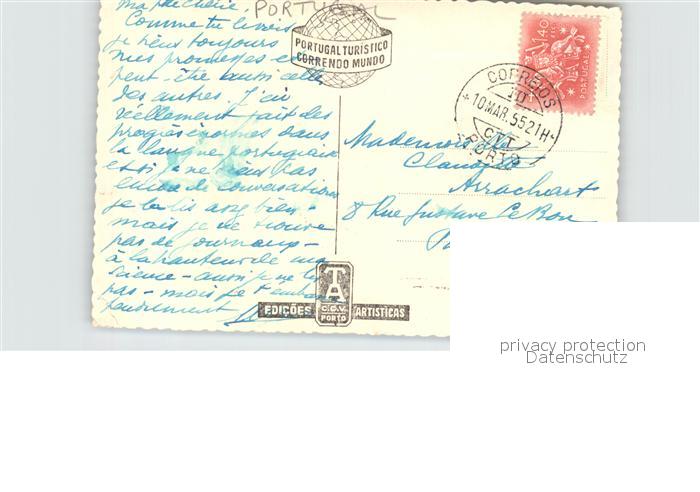 ma petite chérie,
PORTUGAL
Comme tu le vois
je tiens toujours
mes promesses et
peut-être aussi celles
des autres. J'ai
réellement fait des
progrès énormes dans
la langue portugaise
et si je ne tiens pas
de conversations
je la lis assez bien -
mais je ne trouve
pas de journaux -
à la hauteur de ma
science - aussi je ne lis
pas - mais je t'embrasse
tendrement
PORTUGAL TURÍSTICO
CORRENDO MUNDO
1$40
PORTUGAL
CORREIOS
10 MAR. 55 21H
CTT
PORTO
Mademoiselle
Claudie
Arrachart
8 Rue Gustave Le Bon
TA
C.G.V.
PORTO
EDIÇÕES ARTISTICAS
privacy protection
Datenschutz